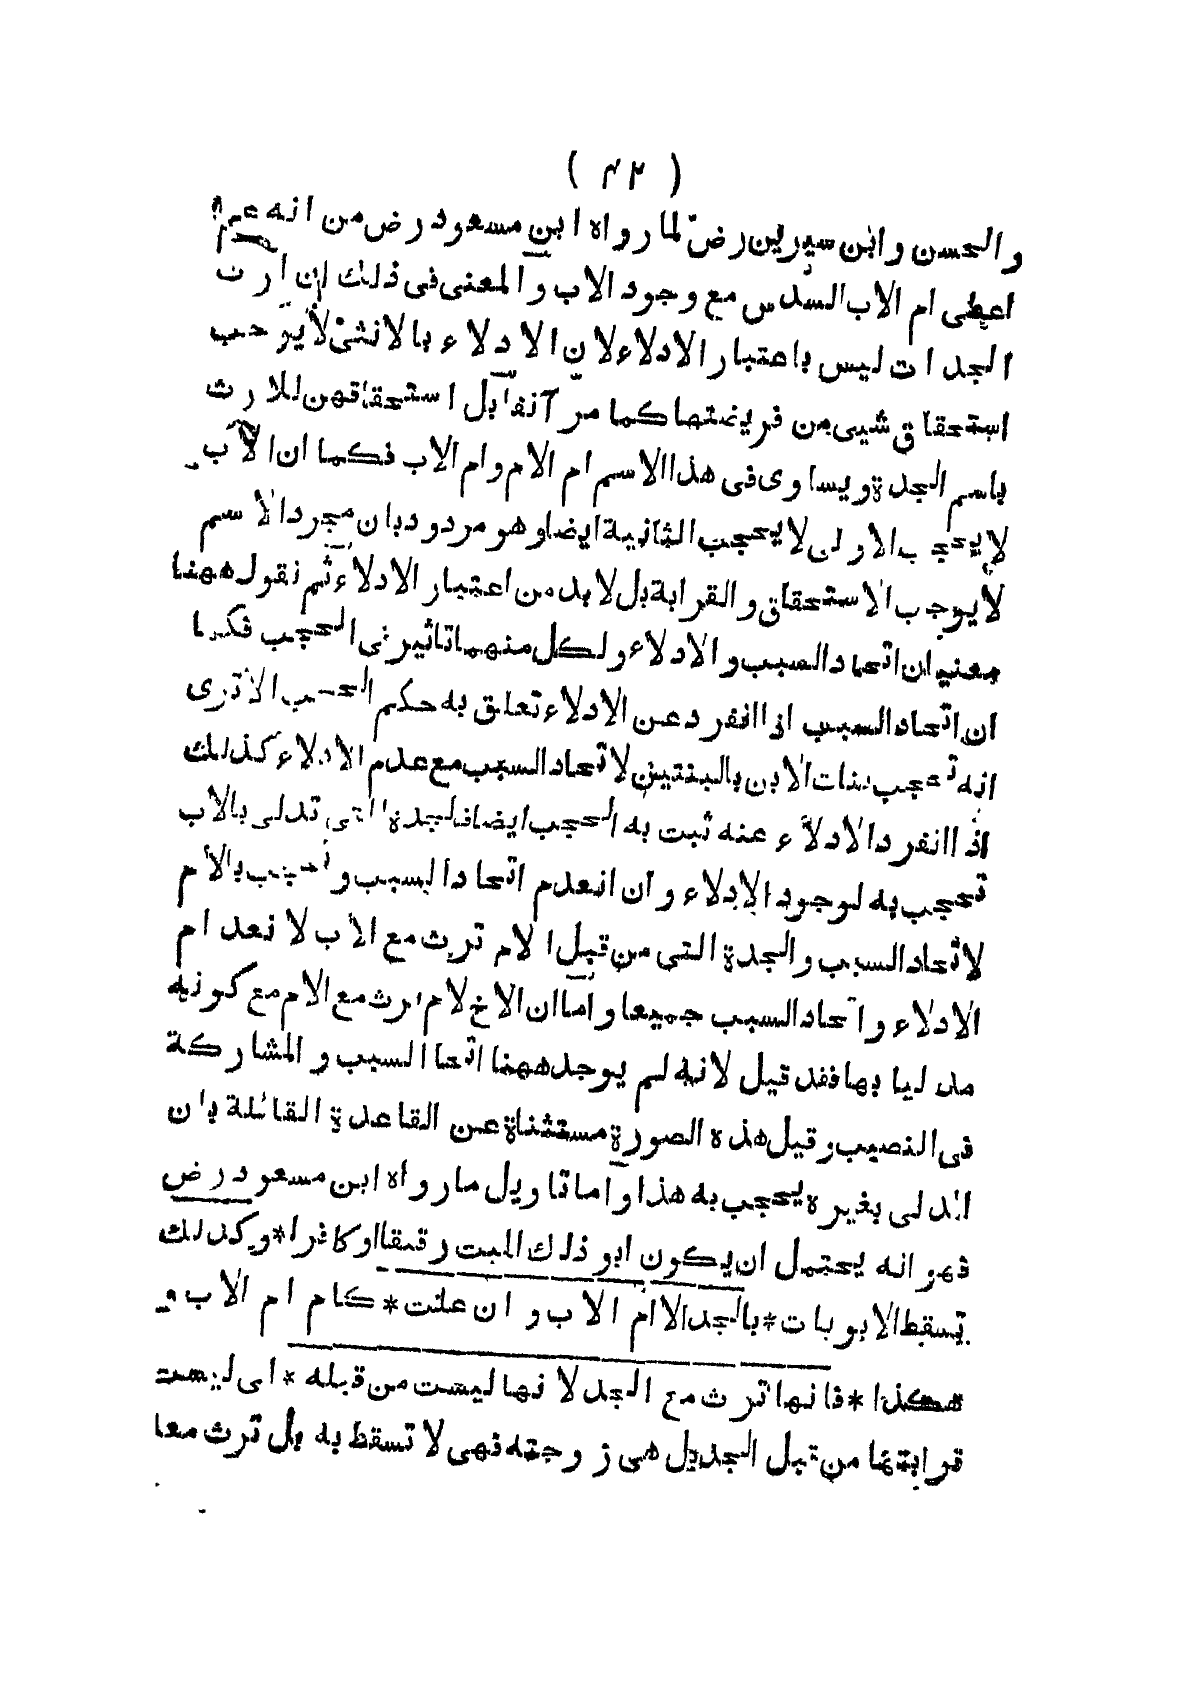 ( ۴۲ )
والحسن وابن سيرين رض لما رواه ابن مسعود رض من انه عم
اعطى ام الاب السدس مع وجود الاب والمعنى فى ذلك ان ارث
الجدات ليس باعتبار الادلاء لان الادلاء بالانثى لا يوجب
استحقاق شيى من فريضتها كما مر آنفا بل استحقاقهن للارث
باسم الجدة ويساوى فى هذا الاسم ام الام وام الاب فكما ان الاب
لا يحجب الاولى لا يحجب الثانية ايضا وهو مردود بان مجرد الاسم
لا يوجب الاستحقاق والقرابة بل لا بد من اعتبار الادلاء ثم نقول ههنا
معنيان اتحاد السبب والادلاء ولكل منهما تاثير فى الحجب فكما
ان اتحاد السبب اذا انفرد عن الادلاء تعلق به حكم الحجب الا ترى
انه تحجب بنات الابن بالبنتين لاتحاد السبب مع عدم الادلاء كذلك
اذا انفرد الادلاء عنه ثبت به الحجب ايضا فالجدة التى تدلى بالاب
تحجب به لوجود الادلاء وان انعدم اتحاد السبب وتحجب بالام
لاتحاد السبب والجدة التى من قبل الام ترث مع الاب لانعدام
الادلاء واتحاد السبب جميعا واما ان الاخ لام يرث مع الام مع كونه
مدليا بها فقد قيل لانه لم يوجد ههنا اتحا السبب والمشاركة
فى النصيب وقيل هذه الصورة مستثناة عن القاعدة القائلة بان
المدلى بغيره يحجب به هذا واما تاويل ما رواه ابن مسعود رض
فهو انه يحتمل ان يكون ابو ذلك الميت رقيقا او كافرا * وكذلك
تسقط الابويات * بالجد الا ام الاب وان علت * كام ام الاب و
هكذا * فانها ترث مع الجد لانها ليست من قبله * اى ليست
قرابتها من قبل الجد بل هى زوجته فهى لا تسقط به بل ترث معا